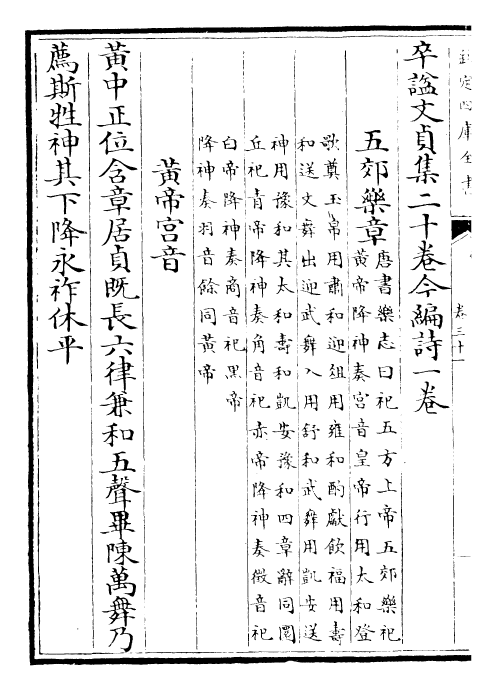 欽定四庫全書
卷三十一
卒諡文貞集二十卷今編詩一卷
五郊樂章
唐書樂志曰祀五方上帝五郊樂祀
黃帝降神奏宮音皇帝行用太和登
歌奠玉帛用肅和迎俎用雍和酌獻飲福用壽
和送文舞出迎武舞入用舒和武舞用凱安送
神用豫和其太和壽和凱安豫和四章辭同圜
丘祀青帝降神奏角音祀赤帝降神奏徵音祀
白帝降神奏商音祀黑帝
降神奏羽音餘同黃帝
黃帝宮音
黃中正位含章居貞既長六律兼和五聲畢陳萬舞乃
薦斯牲神其下降永祚休平